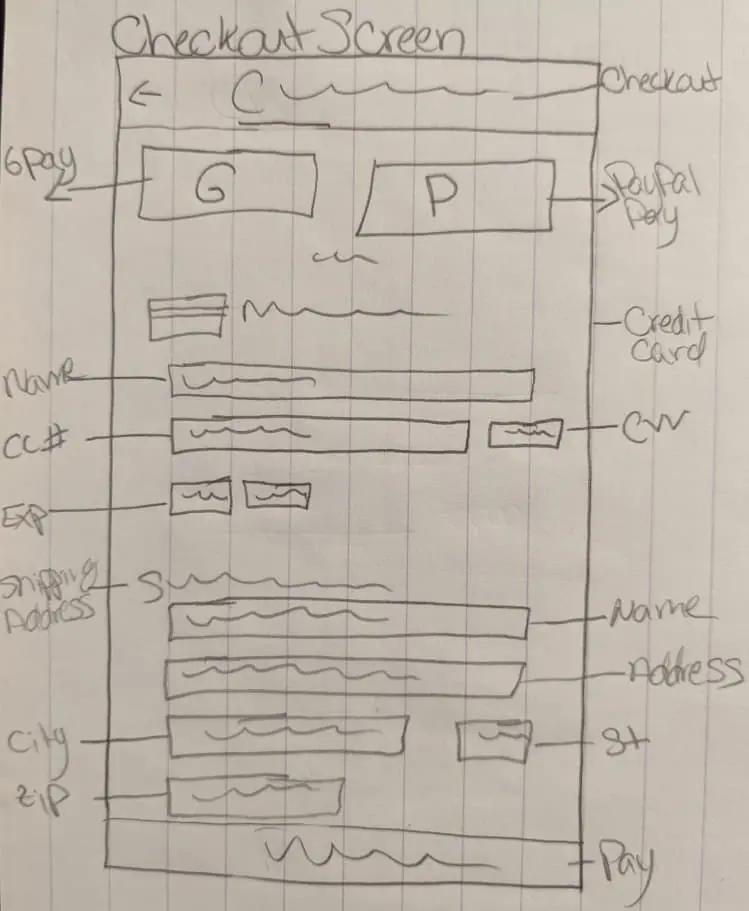 Checkout Screen
← C
Checkout
GPay
G
P
PayPal
Pay
Credit
Card
Name
CC#
CVV
Exp
Shipping
Address
S
Name
Address
City
St
Zip
Pay